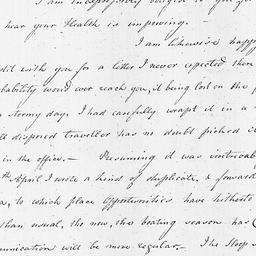 I am inexpressibly obliged to you for
hear your Health is improving. –
I am likewise happy
dit with you for a letter I never expected there
bability would ever reach you, it being lost on the
stormy day. I had carefully wrapt it in a
ll disposed traveller has no doubt picked it
in the office. – Presuming it was irretrievab
th April I wrote a kind of duplicate, & forward
a, to which place Opportunities have hitherto
than usual, tho now, the boating season has
munication will be more regular. – The Sloop